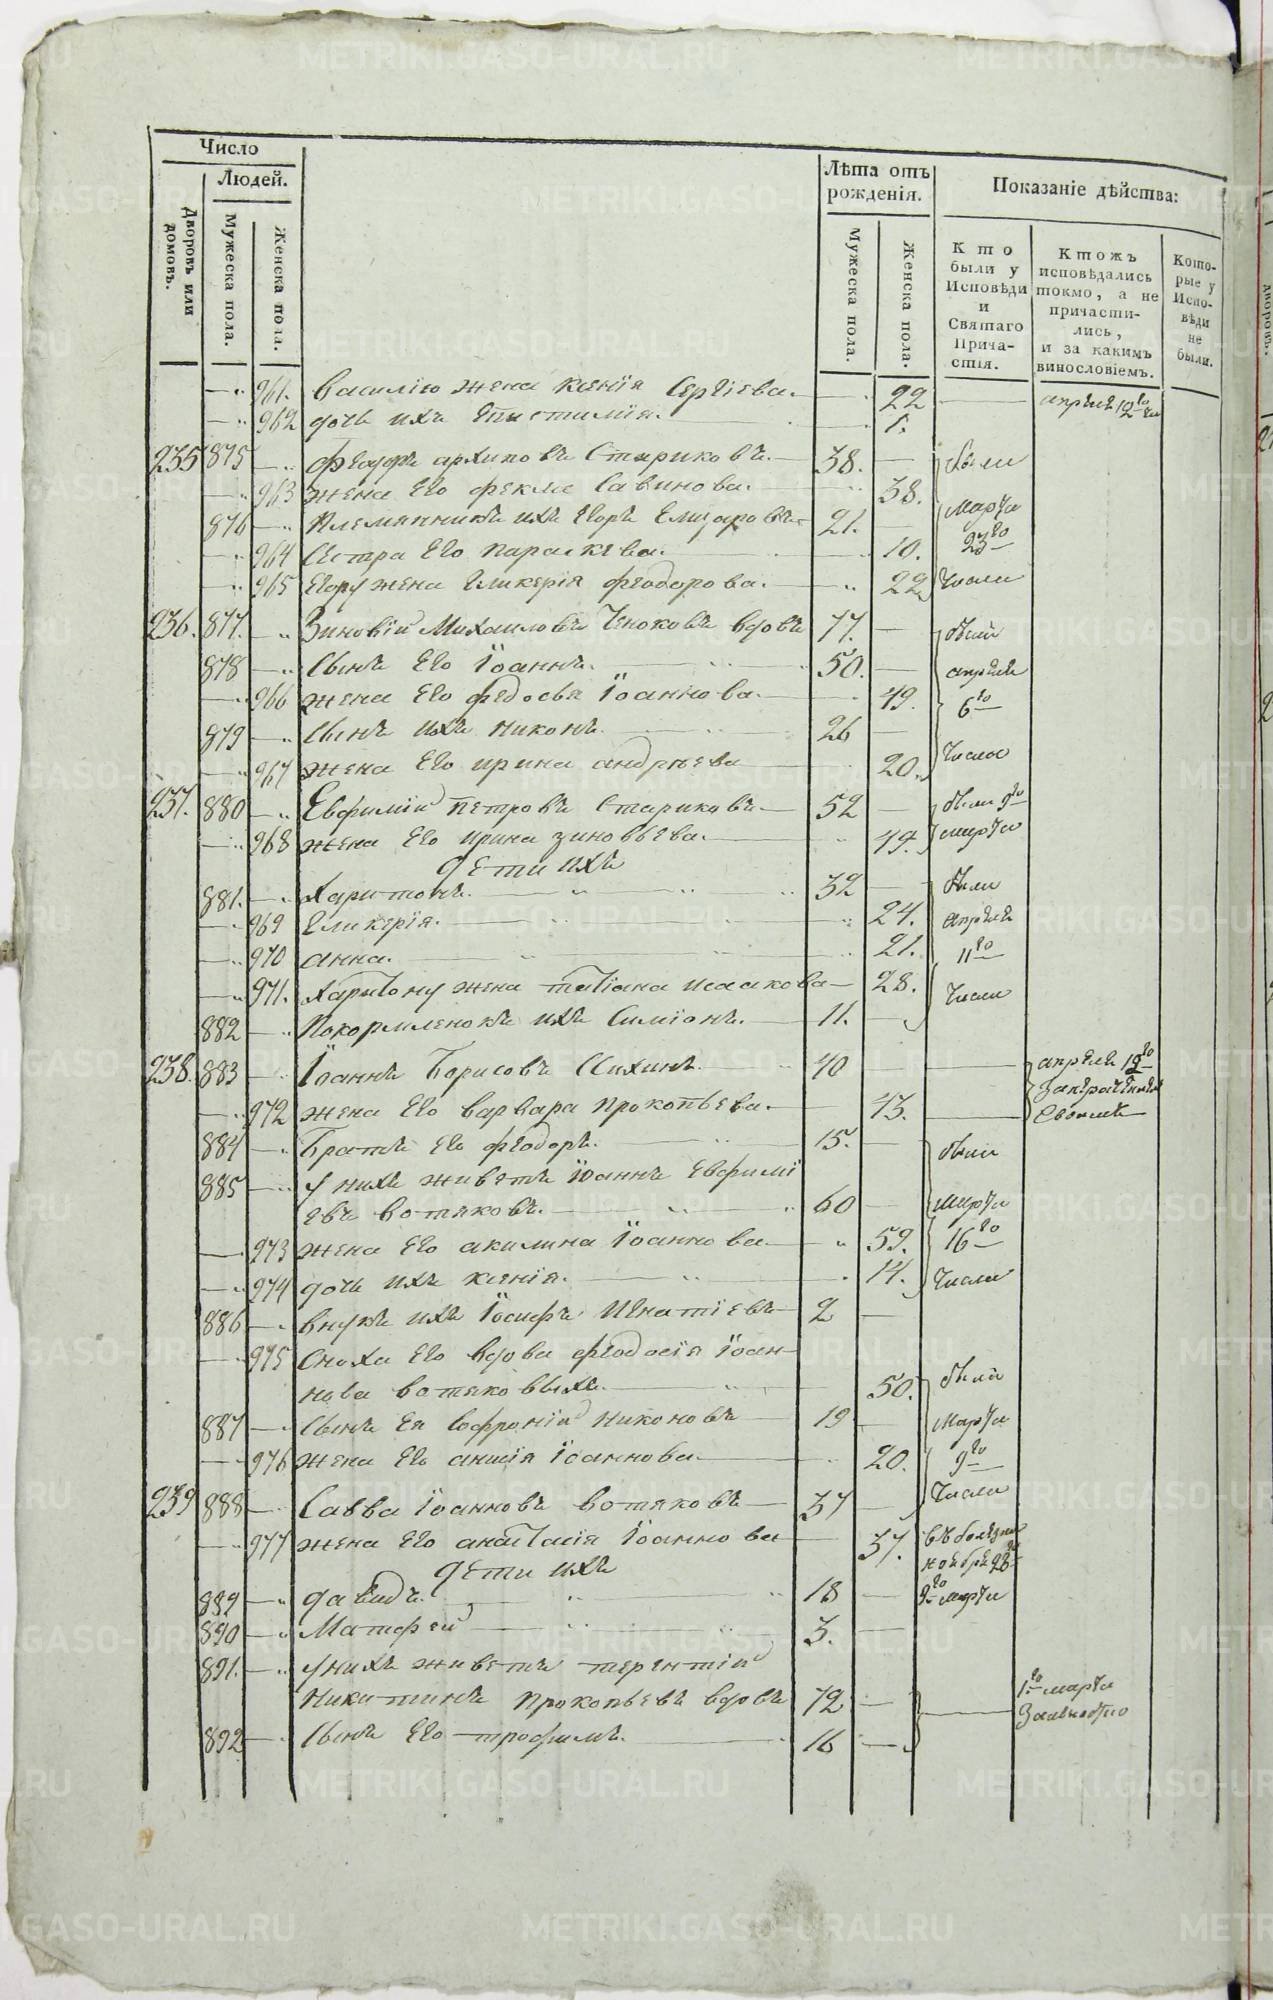 Число
Людей.
Дворовъ или домовъ.
Мужеска пола.
Женска пола.
Лѣта отъ рожденія.
Мужеска пола.
Женска пола.
Показаніе дѣйства:
Кто были у Исповѣди и Святаго Причастія.
Ктожъ исповѣдались токмо, а не причастились, и за какимъ винословіемъ.
Которые у Исповѣди не были.
961. Василію жена Ксенія Сергіева. 22 апрѣля 12го
962 дочь ихъ Епистимія. 1.
235 875 Феодоръ архиповъ Стариковъ. 38. были
963 жена Его фекла Савинова. 38.
876 Племянникъ ихъ Егоръ Елизаровъ 21. Марта
964 Сестра Его параскева. 10. 23го
965 Егору жена Гликерія феодорова. 22 Числа
236. 877. Зиновій Михаиловъ вдовъ 77. были
878 Сынъ Его Іоаннъ. 50. апрѣля
966 жена Его федосья Іоаннова. 49. 6го
879 Сынъ ихъ никонъ. 26
967 жена Его ирина андрѣева 20. Числа
237. 880 Евфимій Петровъ Стариковъ 52 были 9го
968 жена Его ирина зиновьева. 49. марта
дѣти ихъ
881. Харитонъ. 32 были
969 Гликерія. 24. апрѣля
970 анна. 21. 11го
971. Харитону жена татіана исаакова 28. Числа
882 Покормленокъ ихъ Симіонъ. 11.
238. 883 Іоаннъ Борисовъ 40 апрѣля 12го
972 жена Его варвара прокопьева. 43.
884 Братъ Его феодоръ. 15. были
885 У нихъ живетъ Іоаннъ Евфимі
евъ вотяковъ. 60 марта
973 жена Его акилина Іоаннова 59. 16го
974 дочь ихъ ксенія. 14. Числа
886 внукъ ихъ Іосифъ Игнатіевъ 2
975 Сноха Его вдова феодосія Іоан
нова вотяковыхъ. 50. были
887 Сынъ Ея Софроній никоновъ 19 Марта
976 жена Его анисія Іоаннова 20. 9го
Числа
239 888 Савва Іоанновъ вотяковъ 37
977 жена Его анастасія Іоаннова 37. въ болѣзни ноября 28го
дѣти ихъ
889 давидъ. 18 9го марта
890 Матфей 3.
891. У нихъ живетъ терентій
Никитинъ прокопьевъ вдовъ 72 1го марта
892 Сынъ Его трофимъ. 16
METRIKI.GASO-URAL.RU